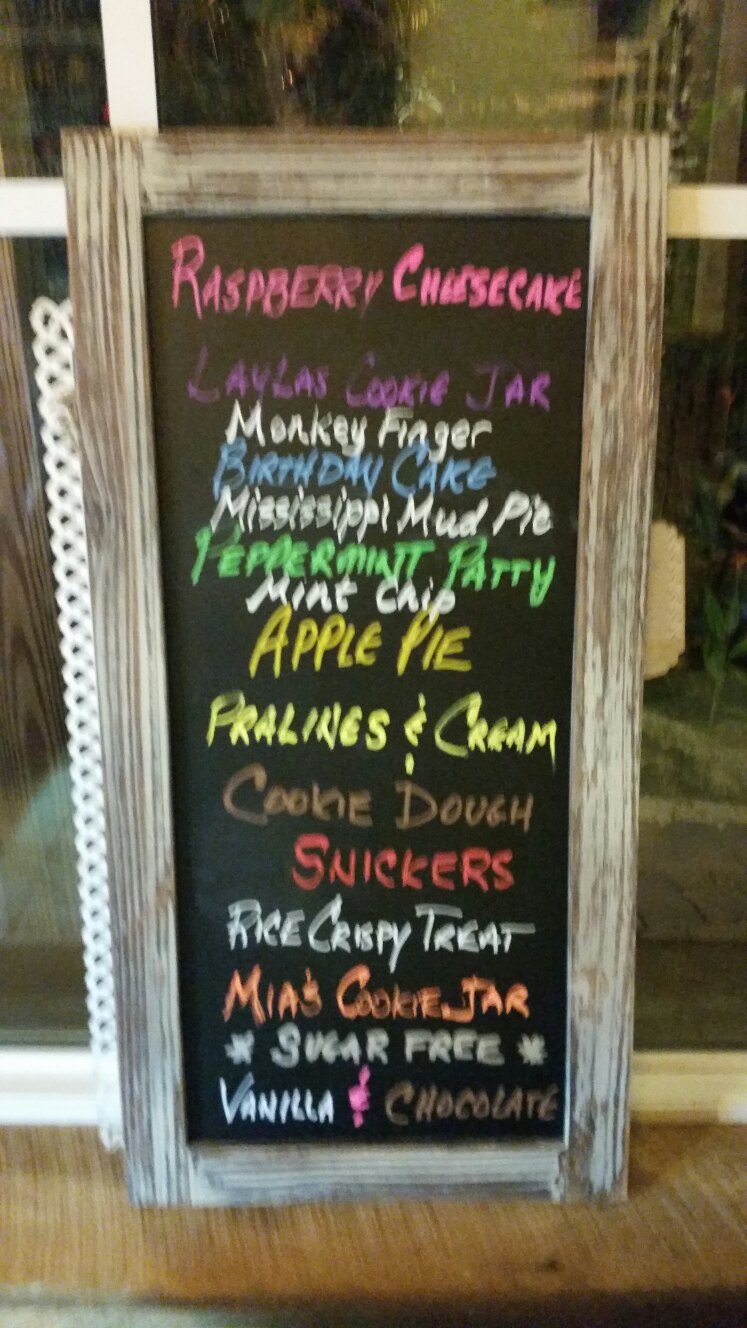 RASPBERRY CHEESECAKE
LAYLAS COOKIE JAR
Monkey Finger
BIRTHDAY CAKE
Mississippi Mud Pie
PEPPERMINT PATTY
Mint Chip
APPLE PIE
PRALINES & CREAM
COOKIE DOUGH
SNICKERS
RICE CRISPY TREAT
MIA'S COOKIE JAR
* SUGAR FREE *
VANILLA & CHOCOLATE